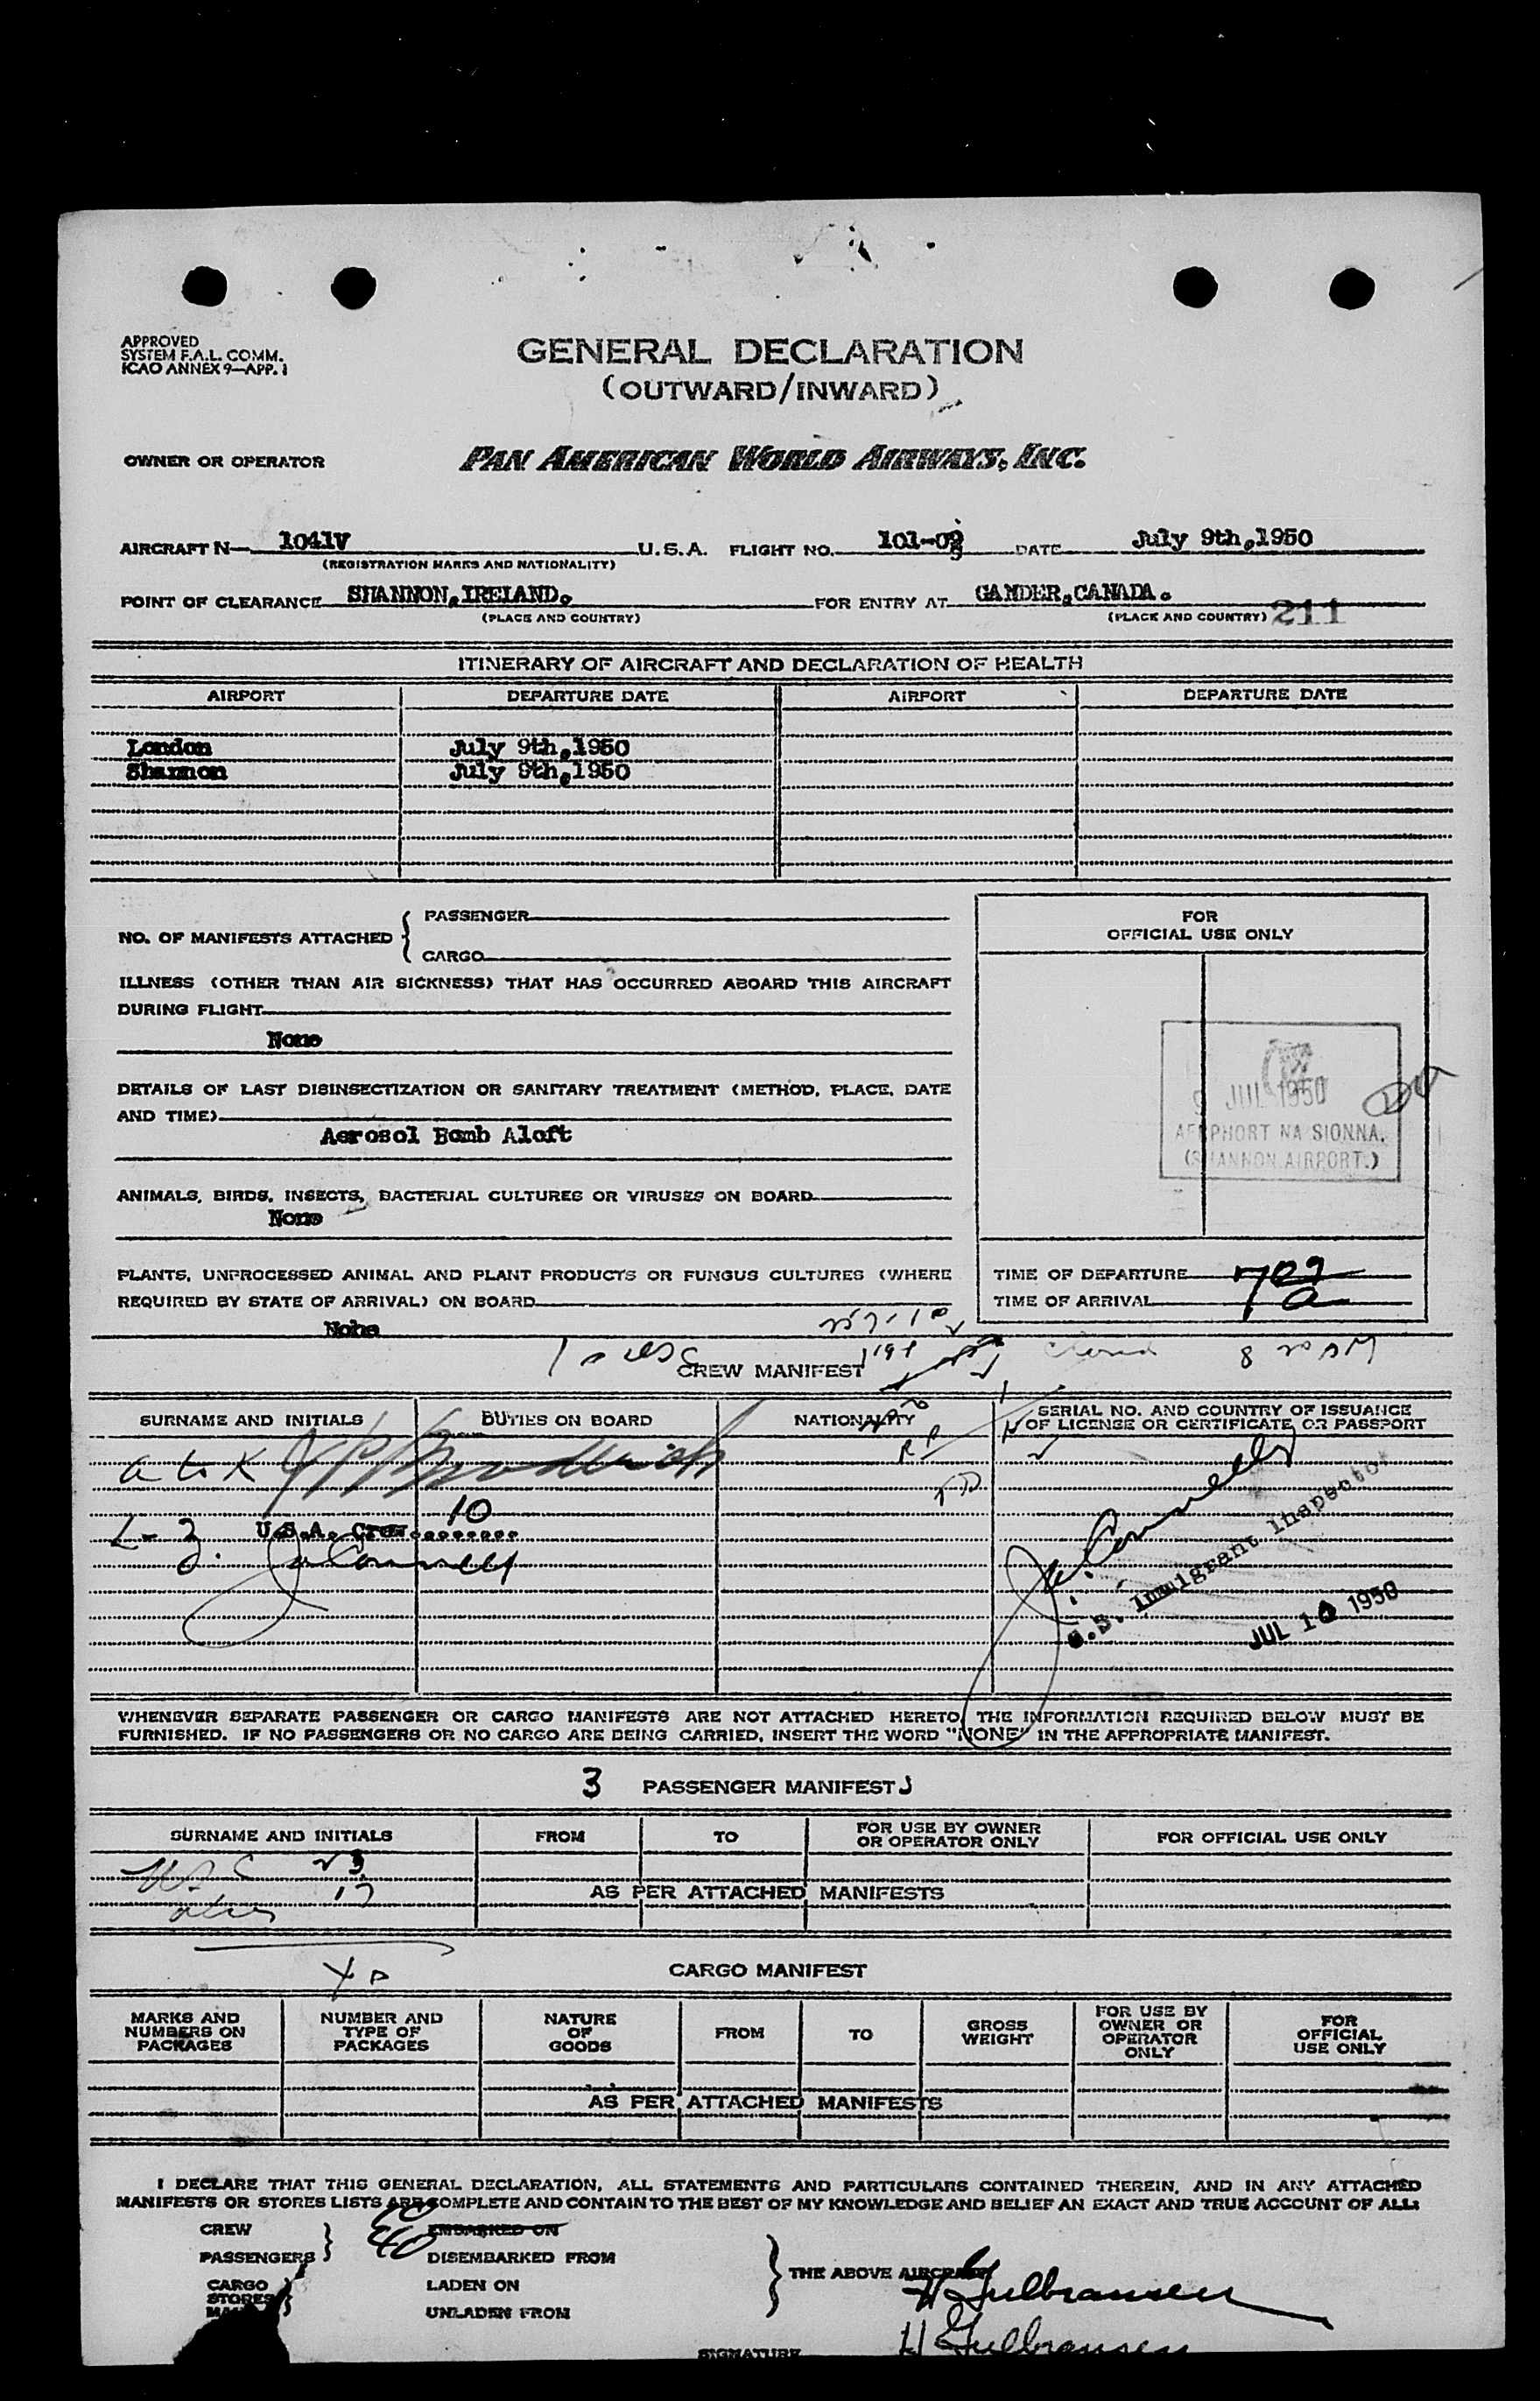 APPROVED
SYSTEM F.A.L. COMM.
ICAO ANNEX 9—APP. 1
GENERAL DECLARATION
(OUTWARD/INWARD)
OWNER OR OPERATOR PAN AMERICAN WORLD AIRWAYS, INC.
AIRCRAFT N— 1041V U.S.A. FLIGHT NO. 101-09 DATE July 9th,1950
(REGISTRATION MARKS AND NATIONALITY)
POINT OF CLEARANCE SHANNON,IRELAND. FOR ENTRY AT GANDER,CANADA.
(PLACE AND COUNTRY) (PLACE AND COUNTRY) 211
ITINERARY OF AIRCRAFT AND DECLARATION OF HEALTH
AIRPORT DEPARTURE DATE AIRPORT DEPARTURE DATE
London July 9th,1950
Shannon July 9th,1950
NO. OF MANIFESTS ATTACHED { PASSENGER
CARGO
ILLNESS (OTHER THAN AIR SICKNESS) THAT HAS OCCURRED ABOARD THIS AIRCRAFT
DURING FLIGHT
None
DETAILS OF LAST DISINSECTIZATION OR SANITARY TREATMENT (METHOD, PLACE, DATE
AND TIME)
Aerosol Bomb Aloft
ANIMALS, BIRDS, INSECTS, BACTERIAL CULTURES OR VIRUSES ON BOARD
None
PLANTS, UNPROCESSED ANIMAL AND PLANT PRODUCTS OR FUNGUS CULTURES (WHERE
REQUIRED BY STATE OF ARRIVAL) ON BOARD
None
FOR
OFFICIAL USE ONLY
9 JUL 1950
AERPHORT NA SIONNA.
(SHANNON AIRPORT.)
TIME OF DEPARTURE 709
TIME OF ARRIVAL a
8 20 AM
CREW MANIFEST
SURNAME AND INITIALS DUTIES ON BOARD NATIONALITY SERIAL NO. AND COUNTRY OF ISSUANCE
OF LICENSE OR CERTIFICATE OR PASSPORT
a to K
10
L-Z. U.S.A. Crew........
U.S. Immigrant Inspector
JUL 10 1950
WHENEVER SEPARATE PASSENGER OR CARGO MANIFESTS ARE NOT ATTACHED HERETO, THE INFORMATION REQUIRED BELOW MUST BE
FURNISHED. IF NO PASSENGERS OR NO CARGO ARE BEING CARRIED, INSERT THE WORD "NONE" IN THE APPROPRIATE MANIFEST.
3 PASSENGER MANIFEST
SURNAME AND INITIALS FROM TO FOR USE BY OWNER
OR OPERATOR ONLY FOR OFFICIAL USE ONLY
23
17
AS PER ATTACHED MANIFESTS
CARGO MANIFEST
MARKS AND
NUMBERS ON
PACKAGES
NUMBER AND
TYPE OF
PACKAGES
NATURE
OF
GOODS
FROM
TO
GROSS
WEIGHT
FOR USE BY
OWNER OR
OPERATOR
ONLY
FOR
OFFICIAL
USE ONLY
AS PER ATTACHED MANIFESTS
I DECLARE THAT THIS GENERAL DECLARATION, ALL STATEMENTS AND PARTICULARS CONTAINED THEREIN, AND IN ANY ATTACHED
MANIFESTS OR STORES LISTS ARE COMPLETE AND CONTAIN TO THE BEST OF MY KNOWLEDGE AND BELIEF AN EXACT AND TRUE ACCOUNT OF ALL:
CREW EMBARKED ON
PASSENGERS } 40 DISEMBARKED FROM
THE ABOVE AIRCRAFT
CARGO LADEN ON
STORES
UNLADEN FROM
H Gulbransen
SIGNATURE H Gulbransen